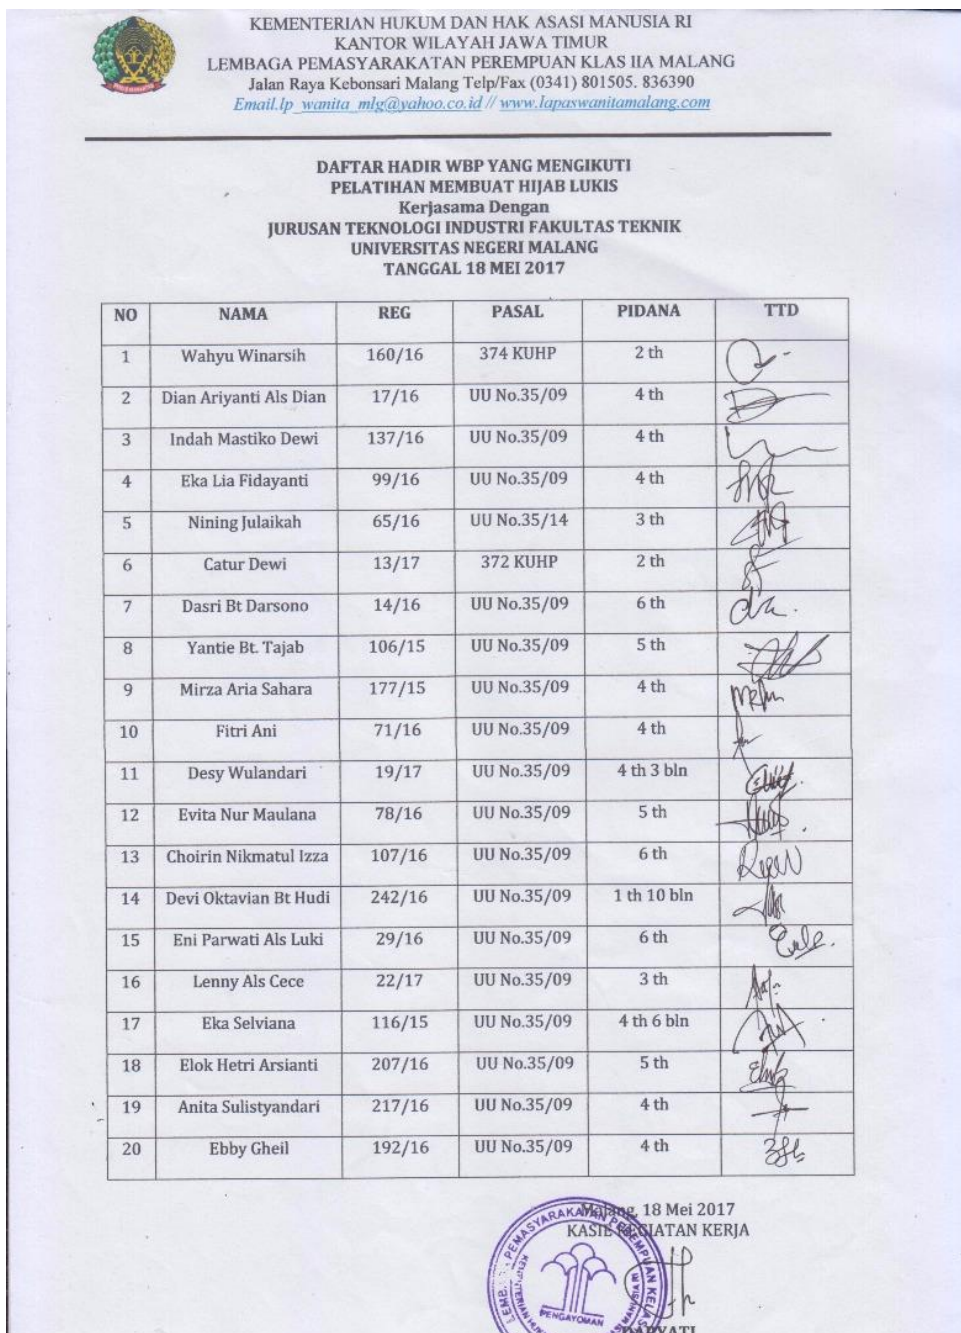 KEMENTERIAN HUKUM DAN HAK ASASI MANUSIA RI
KANTOR WILAYAH JAWA TIMUR
LEMBAGA PEMASYARAKATAN PEREMPUAN KLAS IIA MALANG
Jalan Raya Kebonsari Malang Telp/Fax (0341) 801505. 836390
Email.lp_wanita_mlg@yahoo.co.id // www.lapaswanitamalang.com
DAFTAR HADIR WBP YANG MENGIKUTI
PELATIHAN MEMBUAT HIJAB LUKIS
Kerjasama Dengan
JURUSAN TEKNOLOGI INDUSTRI FAKULTAS TEKNIK
UNIVERSITAS NEGERI MALANG
TANGGAL 18 MEI 2017
NO NAMA REG PASAL PIDANA TTD
1 Wahyu Winarsih 160/16 374 KUHP 2 th
2 Dian Ariyanti Als Dian 17/16 UU No.35/09 4 th
3 Indah Mastiko Dewi 137/16 UU No.35/09 4 th
4 Eka Lia Fidayanti 99/16 UU No.35/09 4 th
5 Nining Julaikah 65/16 UU No.35/14 3 th
6 Catur Dewi 13/17 372 KUHP 2 th
7 Dasri Bt Darsono 14/16 UU No.35/09 6 th
8 Yantie Bt. Tajab 106/15 UU No.35/09 5 th
9 Mirza Aria Sahara 177/15 UU No.35/09 4 th
10 Fitri Ani 71/16 UU No.35/09 4 th
11 Desy Wulandari 19/17 UU No.35/09 4 th 3 bln
12 Evita Nur Maulana 78/16 UU No.35/09 5 th
13 Choirin Nikmatul Izza 107/16 UU No.35/09 6 th
14 Devi Oktavian Bt Hudi 242/16 UU No.35/09 1 th 10 bln
15 Eni Parwati Als Luki 29/16 UU No.35/09 6 th
16 Lenny Als Cece 22/17 UU No.35/09 3 th
17 Eka Selviana 116/15 UU No.35/09 4 th 6 bln
18 Elok Hetri Arsianti 207/16 UU No.35/09 5 th
19 Anita Sulistyandari 217/16 UU No.35/09 4 th
20 Ebby Gheil 192/16 UU No.35/09 4 th
Malang, 18 Mei 2017
KASIE KEGIATAN KERJA
PENGAYOMAN
DARYATI